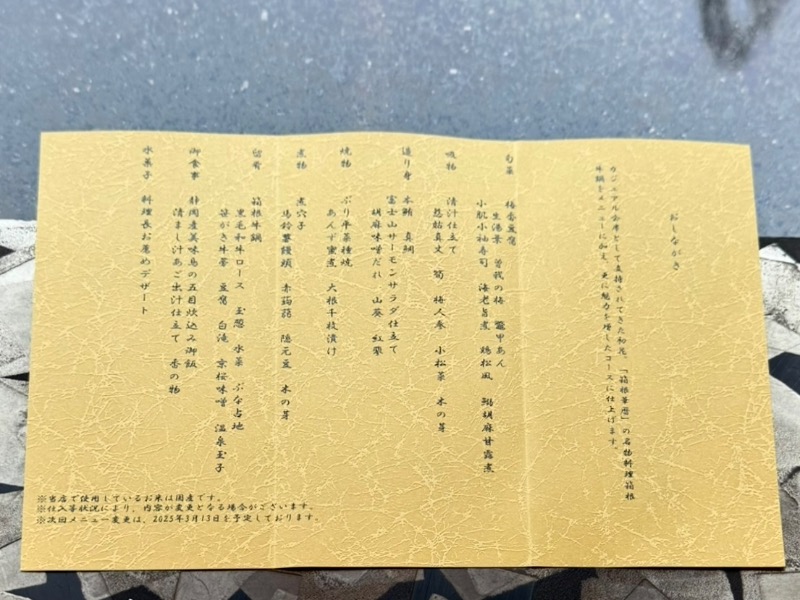 おしながき
カジュアル会席として支持されてきた和花。「箱根華暦」の名物料理箱根
牛鍋をメニューに加え、更に魅力を増したコースに仕上げます。
旬菜 梅香豆腐
生湯葉 曽我の梅 鼈甲あん
小肌小袖寿司 海老旨煮 鶏松風 胡麻甘露煮
吸物 清汁仕立て
真丈 筍 梅人参 小松菜 木の芽
造り身 本鮪 真鯛
富士山サーモンサラダ仕立て
胡麻味噌だれ 山葵 紅蓼
焼物 ぶり早菜種焼
あんず蜜煮 大根千枚漬け
煮物 煮穴子
馬鈴薯饅頭 赤蒟蒻 隠元豆 木の芽
留肴 箱根牛鍋
黒毛和牛ロース 玉葱 水菜 ぶな占地
笹がき牛蒡 豆腐 白滝 京桜味噌 温泉玉子
御食事 静岡産美味鳥の五目炊込み御飯
清まし汁あご出汁仕立て 香の物
水菓子 料理長お薦めデザート
※当店で使用しているお米は国産です。
※仕入等状況により、内容が変更となる場合がございます。
※次回メニュー変更は、2025年3月13日を予定しております。